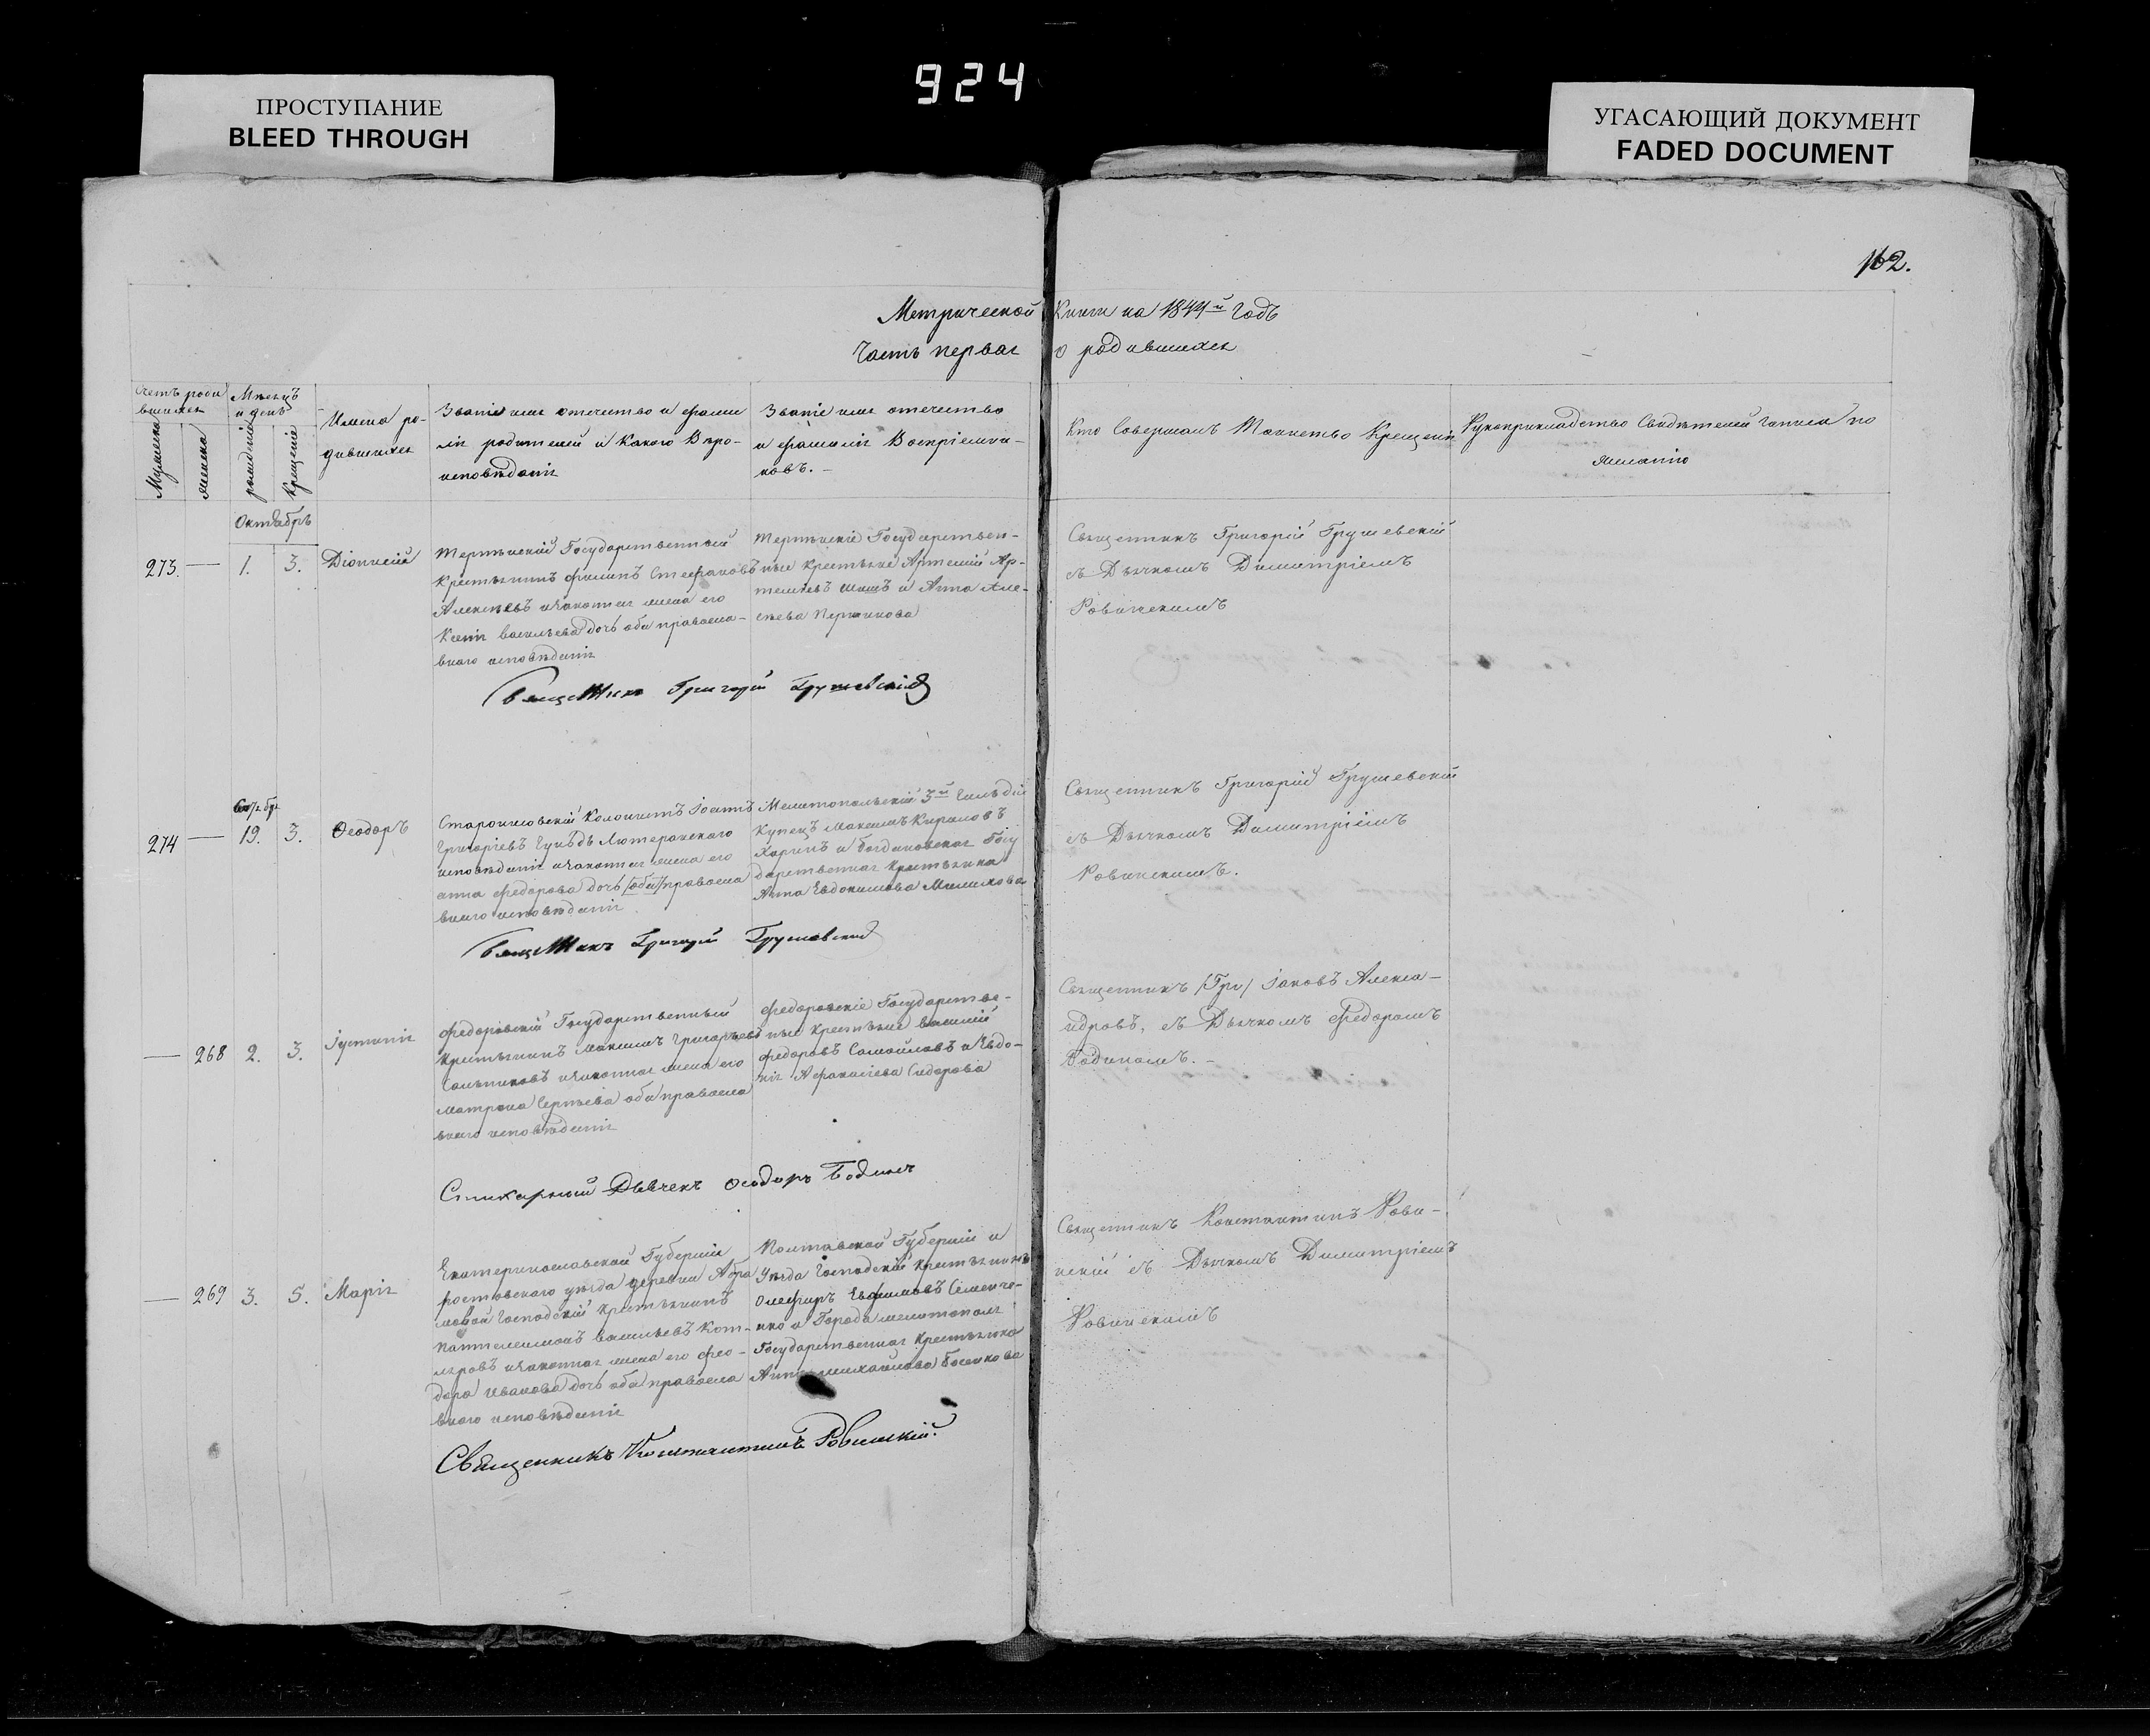 924
ПРОСТУПАНИЕ
BLEED THROUGH
УГАСАЮЩИЙ ДОКУМЕНТ
FADED DOCUMENT
162.
Метрической Книги на 1844й Годъ
Часть первая о родившихся
Счетъ роди
вшихся
Мужеска
женска
Мѣсяцъ
и день
рожденія
Крещенія
Имена ро-
дившихся
Званіе имя отечество и фами
лія родителей и Какого Вѣро-
исповѣданія
Званіе имя отечество
и фамилія Воспріемни-
ковъ.-
Кто Совершалъ Таинство Крещенія
Рукоприкладство Свидѣтелей записи по
желанію
Октябрь
273. — 1. 3. Діонисій
Государственный
Крестьянинъ Филипъ Стефановъ
Алексѣевъ изаконная жена его
Ксенія васильева дочь оба правосла-
внаго исповѣданія
Государствен-
ные Крестьяне Артемій Ар-
темьевъ и Анна Але-
Священникъ Григорій Грушевскій
съ Дьячкомъ Димитріемъ
Ровинскимъ
Священникъ Григорій Грушевскій
274 — 19. 3. Ѳеодоръ
Колонистъ Іоаннъ
Григорьевъ Лютеранскаго
исповѣданія изаконная жена его
анна Федорова дочь [оба] правосла
внаго исповѣданія
Мелитопольскій 3й Гильдіи
Купецъ Максимъ Кириловъ
Харинъ и Богдановская Госу
дарственная Крестьянка
Анна Евдокимова
Священникъ Григорій Грушевскій
съ Дьячкомъ Димитріемъ
Ровинскимъ.
Священникъ Григорій Грушевскій
— 268 2. 3. Іустинія
Федоровскій Государственный
Крестьянинъ Максимъ Григорьевъ
изаконная жена его
матрона Сергѣева оба правосла
внаго исповѣданія
Федоровскіе Государстве-
ные Крестьяне василій
Федоровъ Самойловъ и Евдо-
кія Афанасіева Сидорова
Священникъ /Гри/ Іаковъ Алекса-
ндровъ, съ Дьячкомъ Федоромъ
Дьячекъ Ѳеодоръ
— 269 3. 5. Марія
Екатеринославской Губерніи
ростовскаго уѣзда деревни Абра
мовой Господскій Крестьянинъ
Пантелеимонъ васильевъ Кот-
ляровъ изаконная жена его Фео-
дора Иванова дочь оба правосла
внаго исповѣданія
Полтавской Губерніи и
Уѣзда Господскій Крестьянинъ
Олефиръ Евфимовъ Семенче-
нко и Города мелитополя
Государственная Крестьянка
Анна михайлова
Священникъ Константинъ Рови-
нскій съ Дьячкомъ Димитріемъ
Ровинскимъ
Священникъ Константинъ Ровинскій.